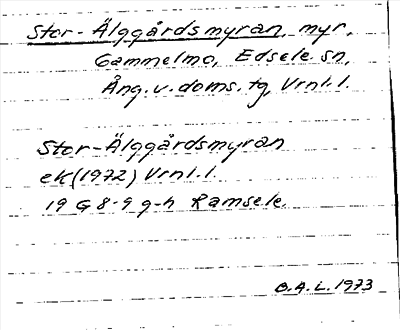 Stor-Älggårdsmyran, myr,
Gammelmo, Edsele sn,
Ång. v. doms. tg, Vrnl. l.
Stor-Älggårdsmyran
ek (1972) Vrnl. l.
19 G 8-9 g-h Ramsele.
O.A.L. 1973